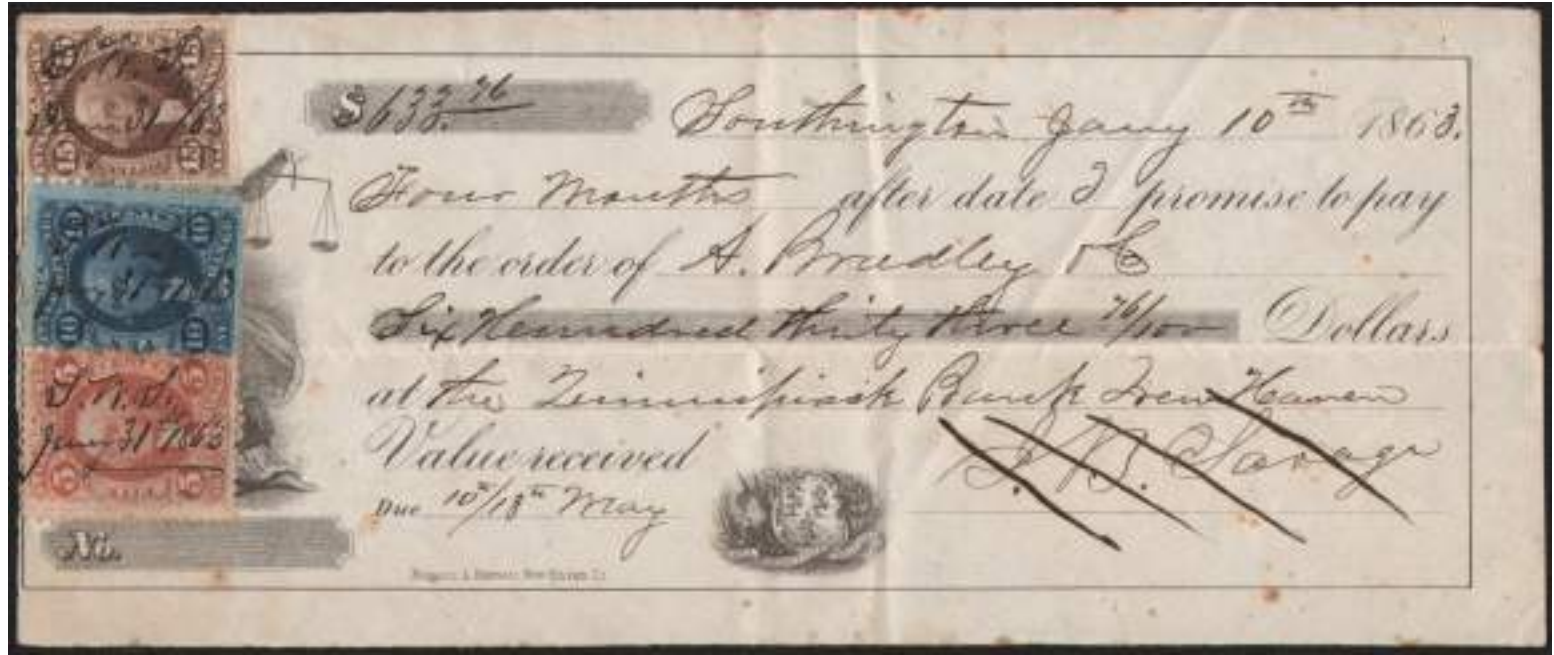 $633.76
Southington Jany 10th 1863.
Four Months after date I promise to pay
to the order of A. Bradley & C
Six Hundred thirty three 76/100 Dollars
at the Quinnipiack Bank New Haven
Value received
Due 10th/13th May
Savage
No.
15 15
15 15
10 10
10 10
5 5
Jany 31 1863
5 5